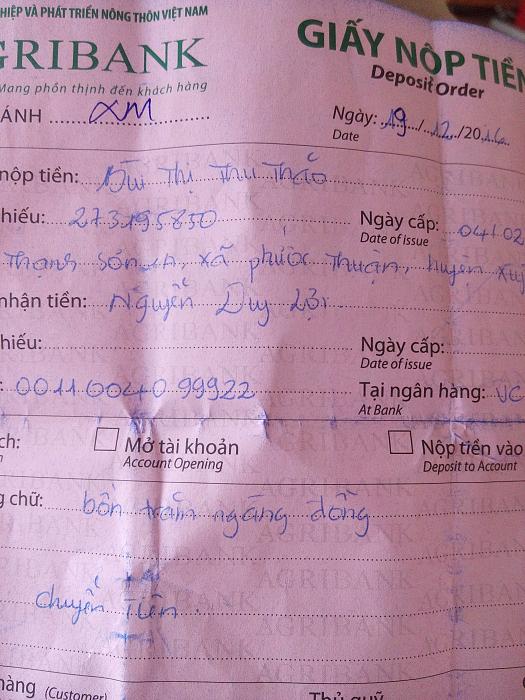 HIỆP VÀ PHÁT TRIỂN NÔNG THÔN VIỆT NAM
GRIBANK
Mang phồn thịnh đến khách hàng
GIẤY NỘP TIỀN
Deposit Order
ÁNH XM
Ngày: 19/12/2016
Date
nộp tiền: Bùi Thị Thu Thảo
hiếu: 273195850
Ngày cấp: 04/02
Date of issue
Thạnh Sơn 1A, xã phước Thuận, huyện Xuy
nhận tiền: Nguyễn Duy Lợi
hiếu:
Ngày cấp:
Date of issue
: 0011004099922
Tại ngân hàng: VC
At Bank
ch:
Mở tài khoản
Account Opening
Nộp tiền vào
Deposit to Account
g chữ: bốn trăm ngàng đồng
chuyển Tiền.
hàng (Customer)
Thủ quỹ